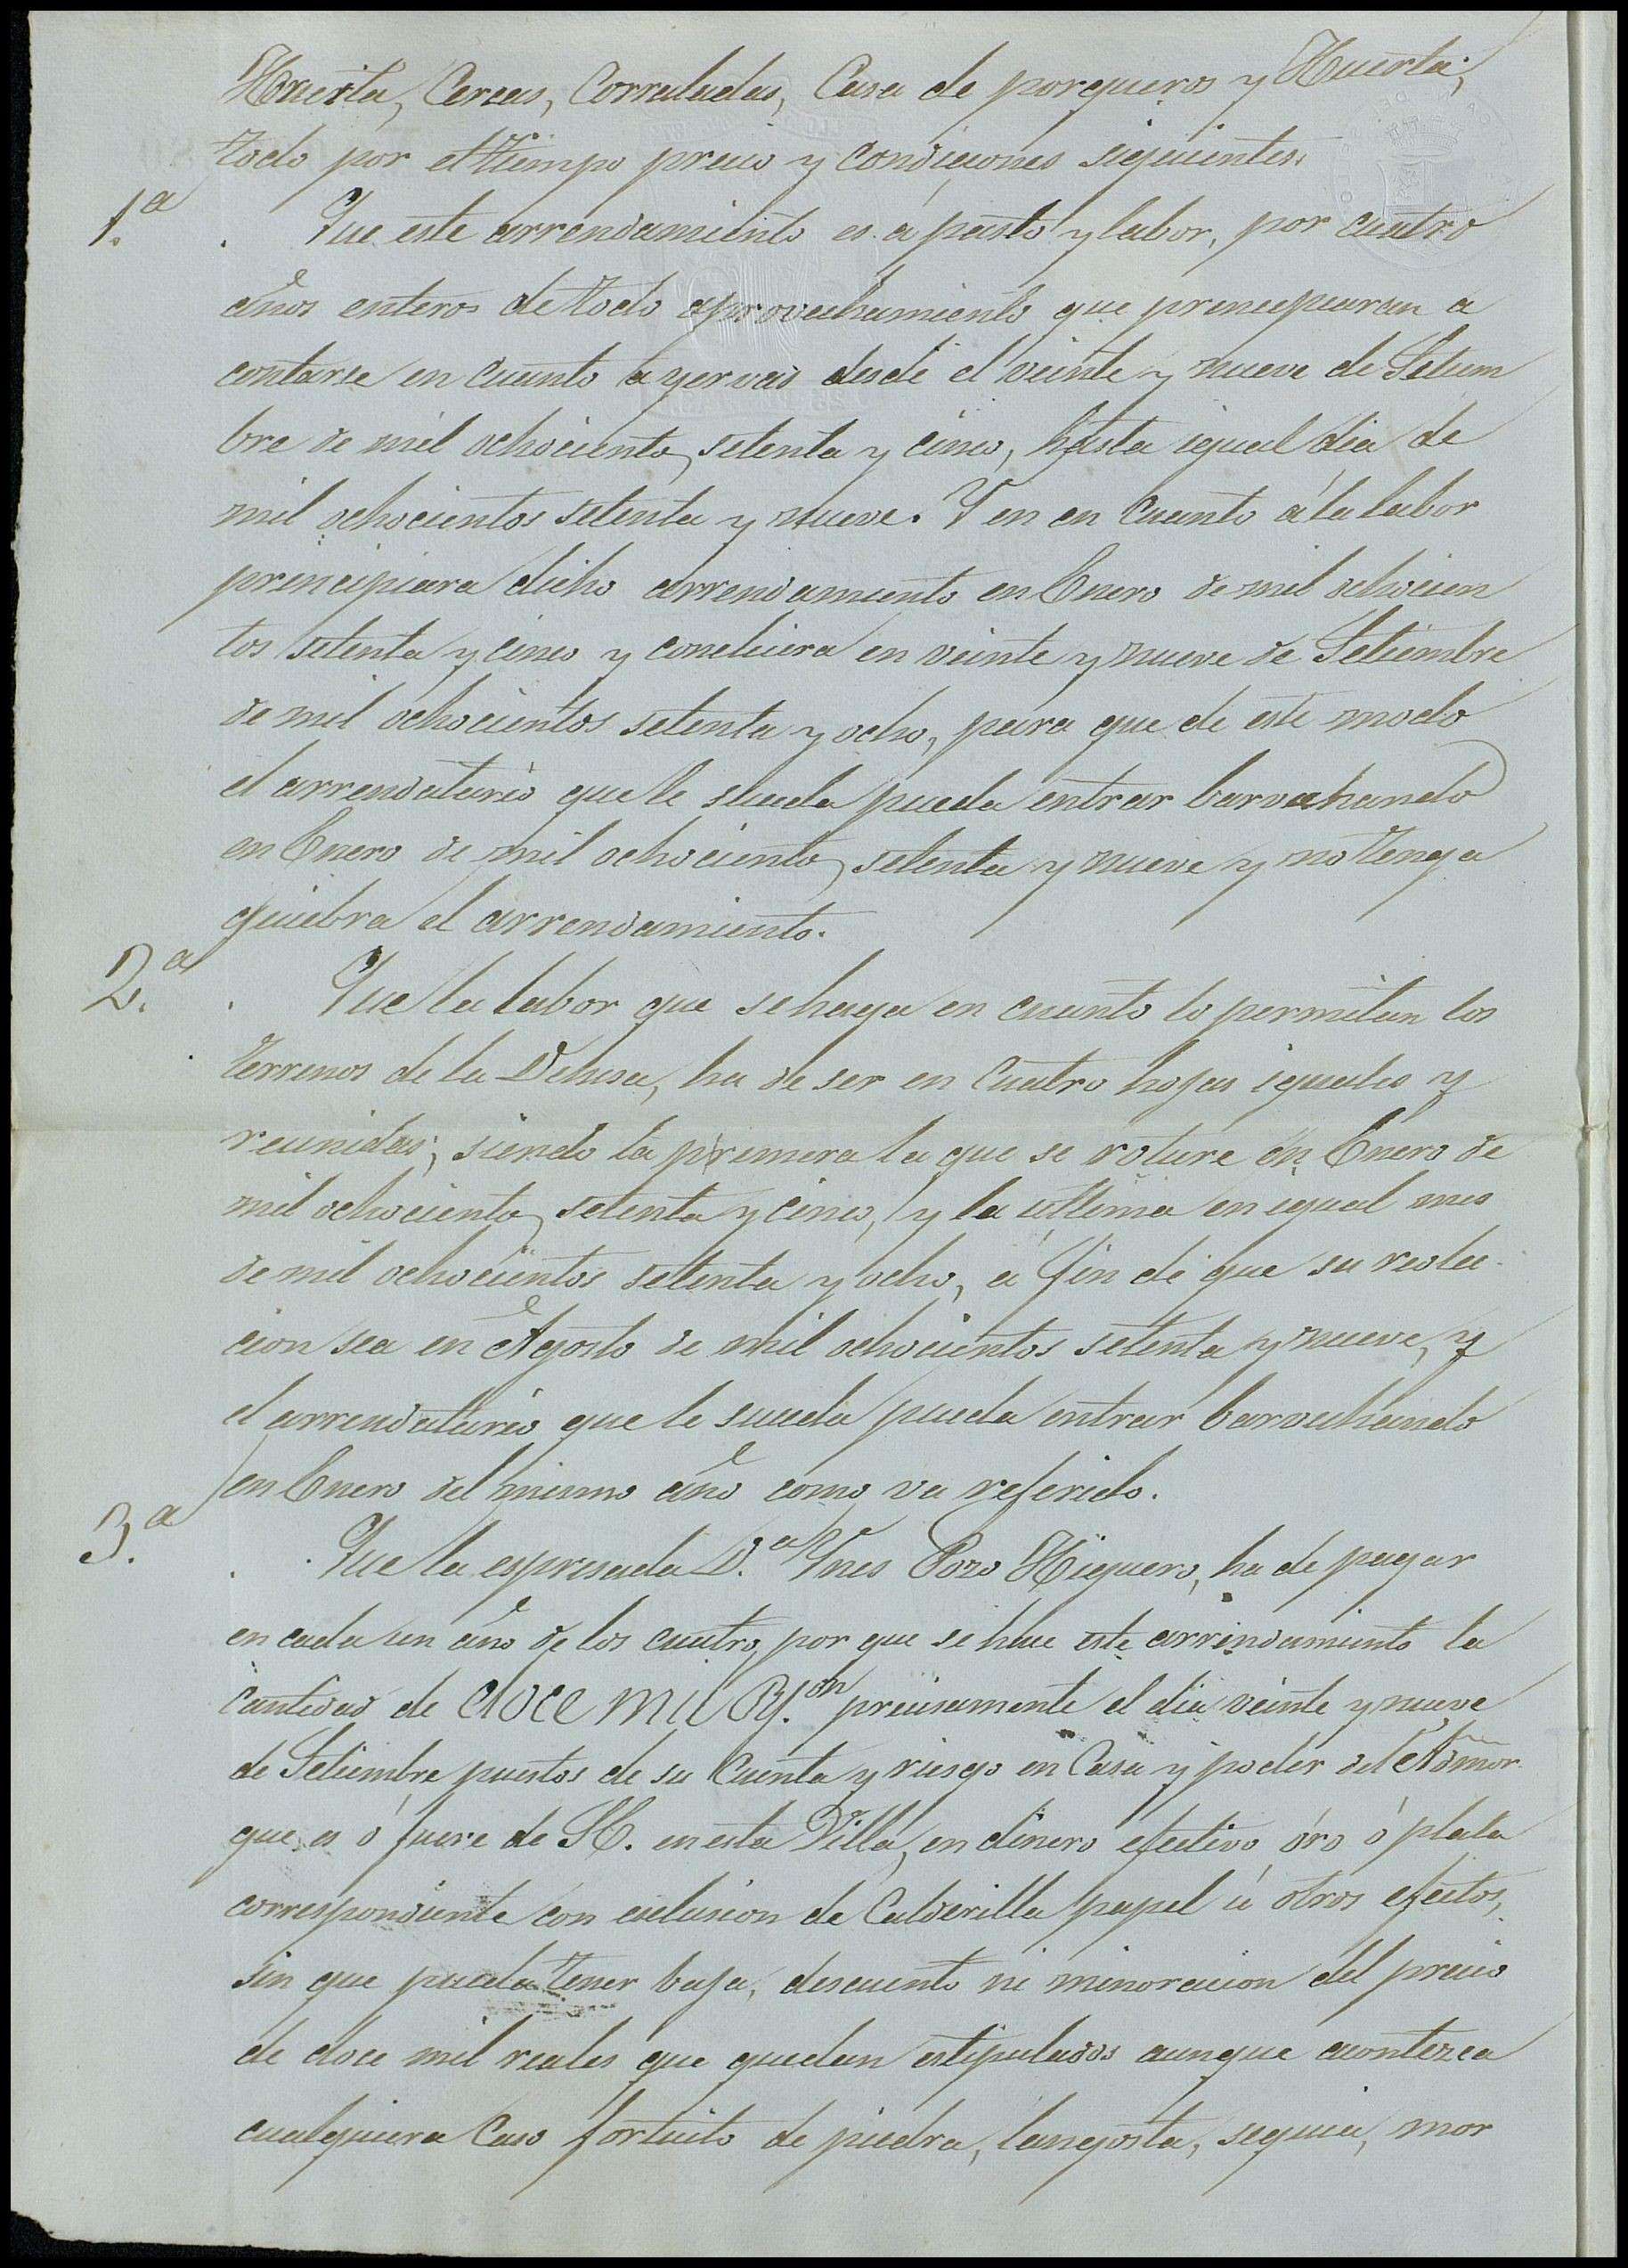 Huerta, Cercas, Corraladas, Casa de porqueros y Huerta;
todo por el tiempo precio y condiciones siguientes.
1.ª Que este arrendamiento es á pasto y labor, por cuatro
años enteros de todo aprovechamiento que principiaran a
contarse en cuanto a yervas desde el veinte y nueve de Setiem
bre de mil ochocientos setenta y cinco, hasta igual dia de
mil ochocientos setenta y nueve. Y en en cuanto á la labor
principiara dicho arrendamiento en Enero de mil ochocien
tos setenta y cinco y concluira en veinte y nueve de Setiembre
de mil ochocientos setenta y ocho, para que de este modo
el arrendatario que le suceda pueda entrar barvechando
en Enero de mil ochocientos setenta y nueve y no tenga
quiebra el arrendamiento.
2.ª Que la labor que se haga en cuanto lo permitan los
terrenos de la Dehesa, ha de ser en cuatro hojas iguales y
reunidas; siendo la primera la que se roture en Enero de
mil ochocientos setenta y cinco, y la ultima en igual mes
de mil ochocientos setenta y ocho, á fin de que su recolec-
cion sea en Agosto de mil ochocientos setenta y nueve, y
el arrendatario que le suceda pueda entrar barvechando
en Enero del mismo año como va referido.
3.ª Que la espresada D.ª Ynes Pozo Higuero, ha de pagar
en cada un año de los cuatro, por que se hace este arrindamiento la
cantidad de doce mil Rs.on precisamente el dia veinte y nueve
de Setiembre puestos de su cuenta y riesgo en Casa y poder del Admor.
que es ó fuere de S.E. en esta Villa, en dinero efectivo óro ó plata
correspondiente con eselusion de Calderilla papel ú otros efectos,
sin que pueda tener baja, descuento ni minoracion del precio
de doce mil reales que quedan estipulados aunque acontezca
cualquiera Caso fortuito de piedra, langosta, sequia, mor